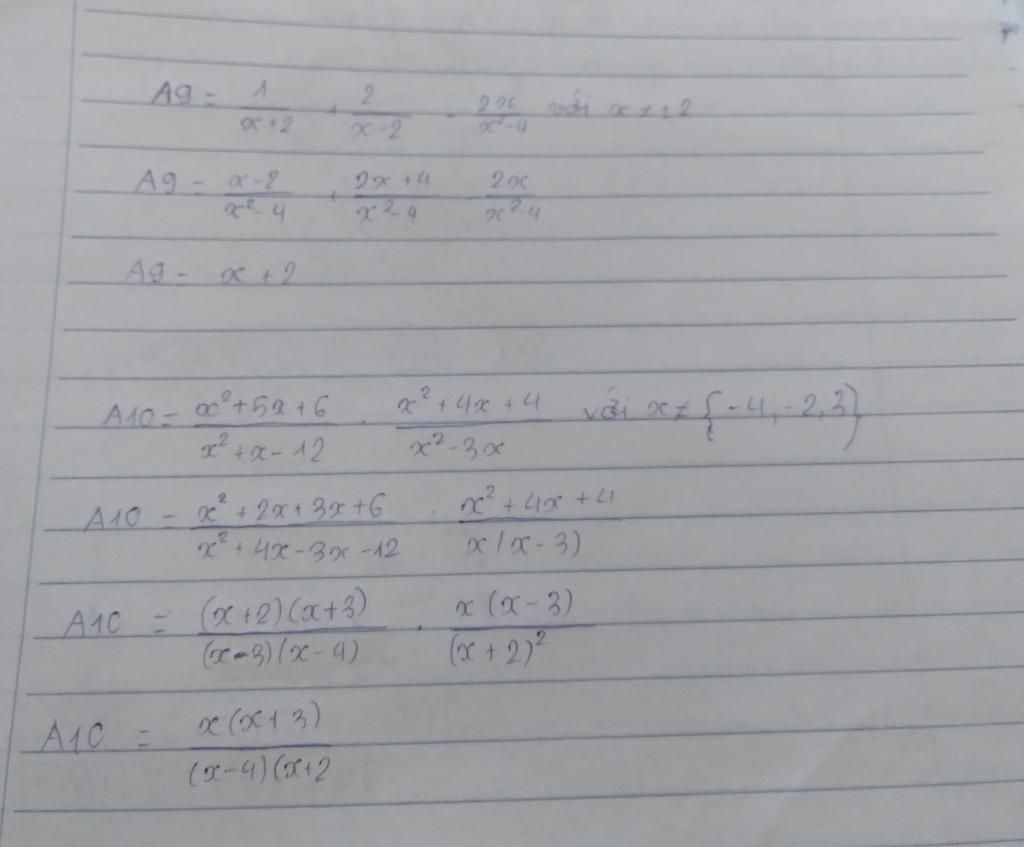 A9 = 1/(x+2) + 2/(x-2) - 2x/(x²-4) với x ≠ ±2
A9 = (x-2)/(x²-4) + (2x+4)/(x²-4) - 2x/(x²-4)
A9 = x+2
A10 = (x²+5x+6)/(x²+x-12) . (x²+4x+4)/(x²-3x) với x ≠ {-4,-2,3}
A10 = (x²+2x+3x+6)/(x²+4x-3x-12) . (x²+4x+4)/(x(x-3))
A10 = ((x+2)(x+3))/((x-3)(x-4)) . (x(x-3))/((x+2)²)
A10 = (x(x+3))/((x-4)(x+2)